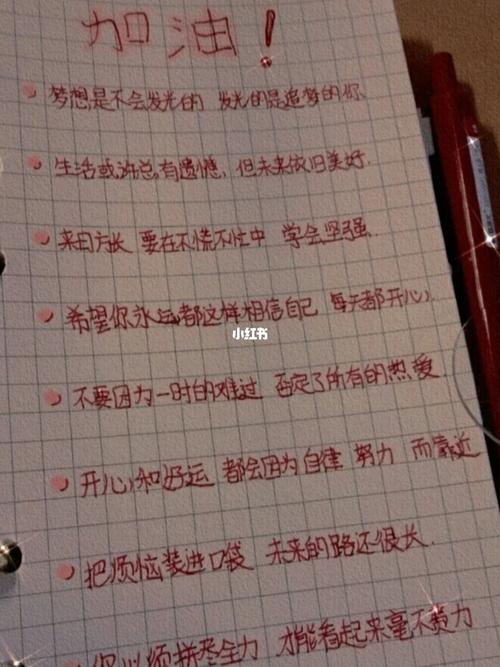 加油！
梦想是不会发光的 发光的是追梦的你
生活或许总有遗憾，但未来依旧美好.
来日方长 要在不慌不忙中 学会坚强
希望你永远都这样相信自己 每天都开心
小红书
不要因为一时的难过 否定了所有的热爱
开心和好运 都会因为自律 努力 而靠近
把烦恼装进口袋 未来的路还很长.
你必须拼尽全力 才能看起来毫不费力